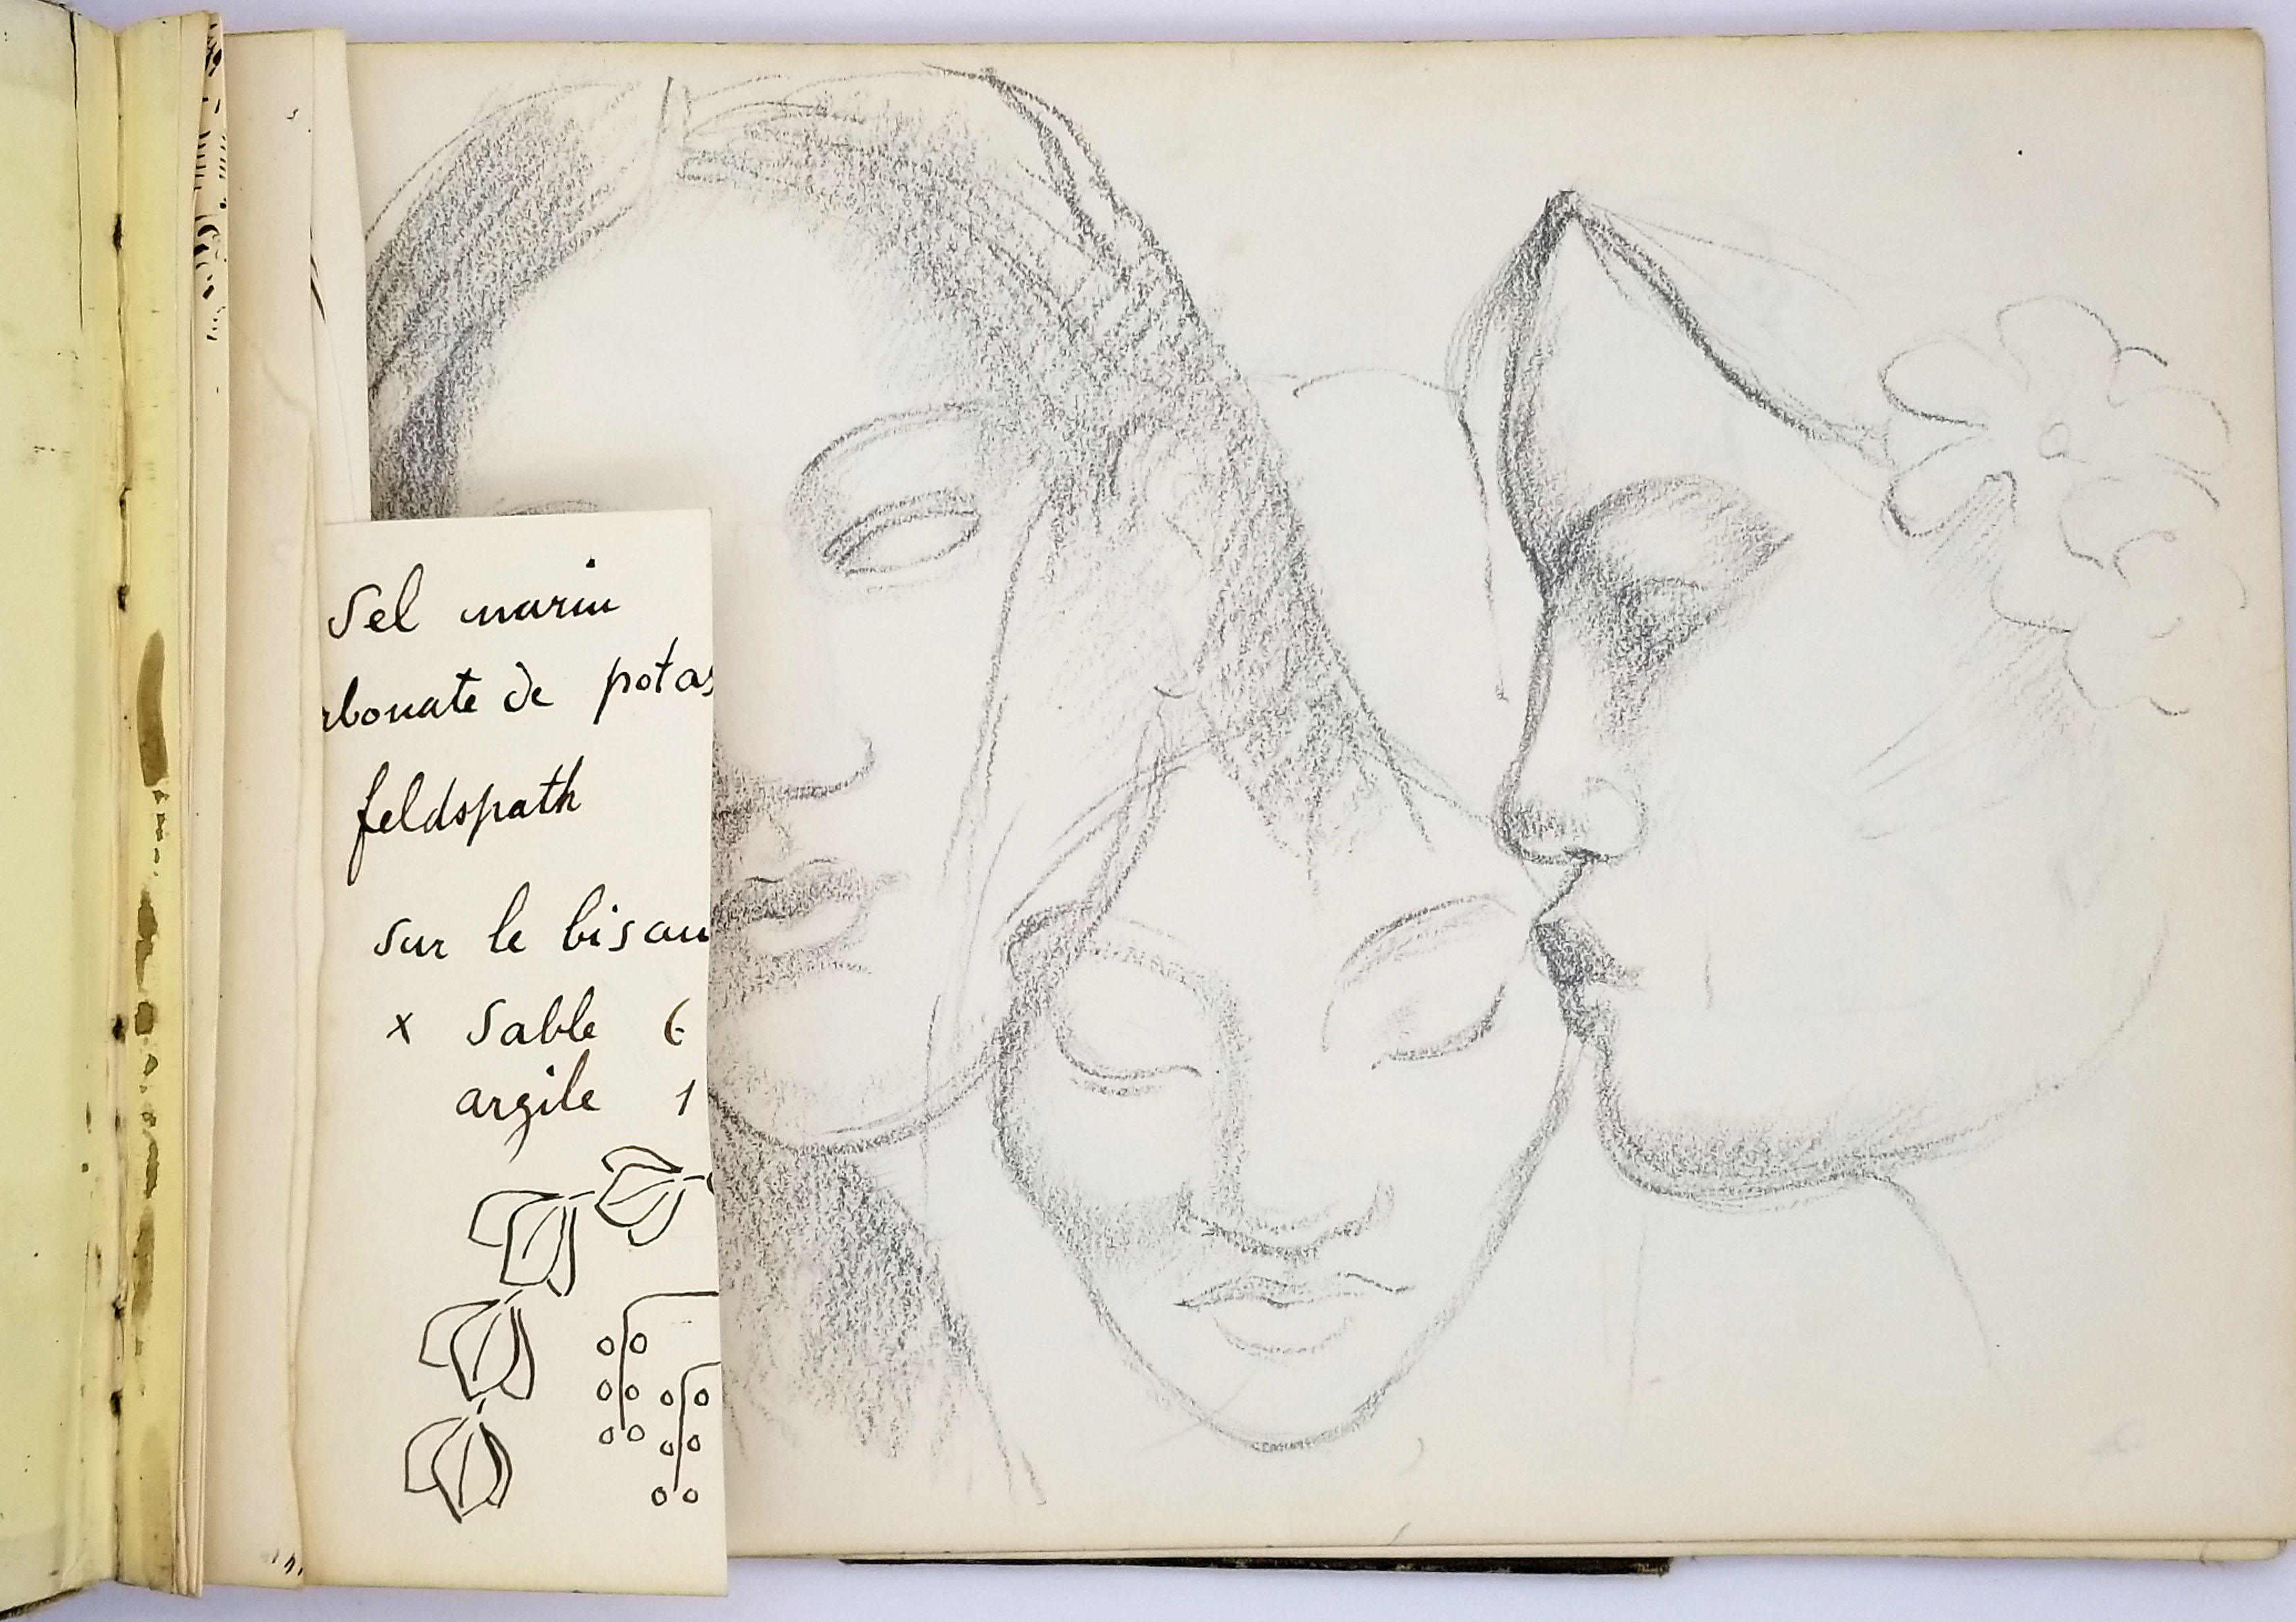 Sel marin
rbonate de potas
feldspath
sur le biscu
x Sable 6
argile 1